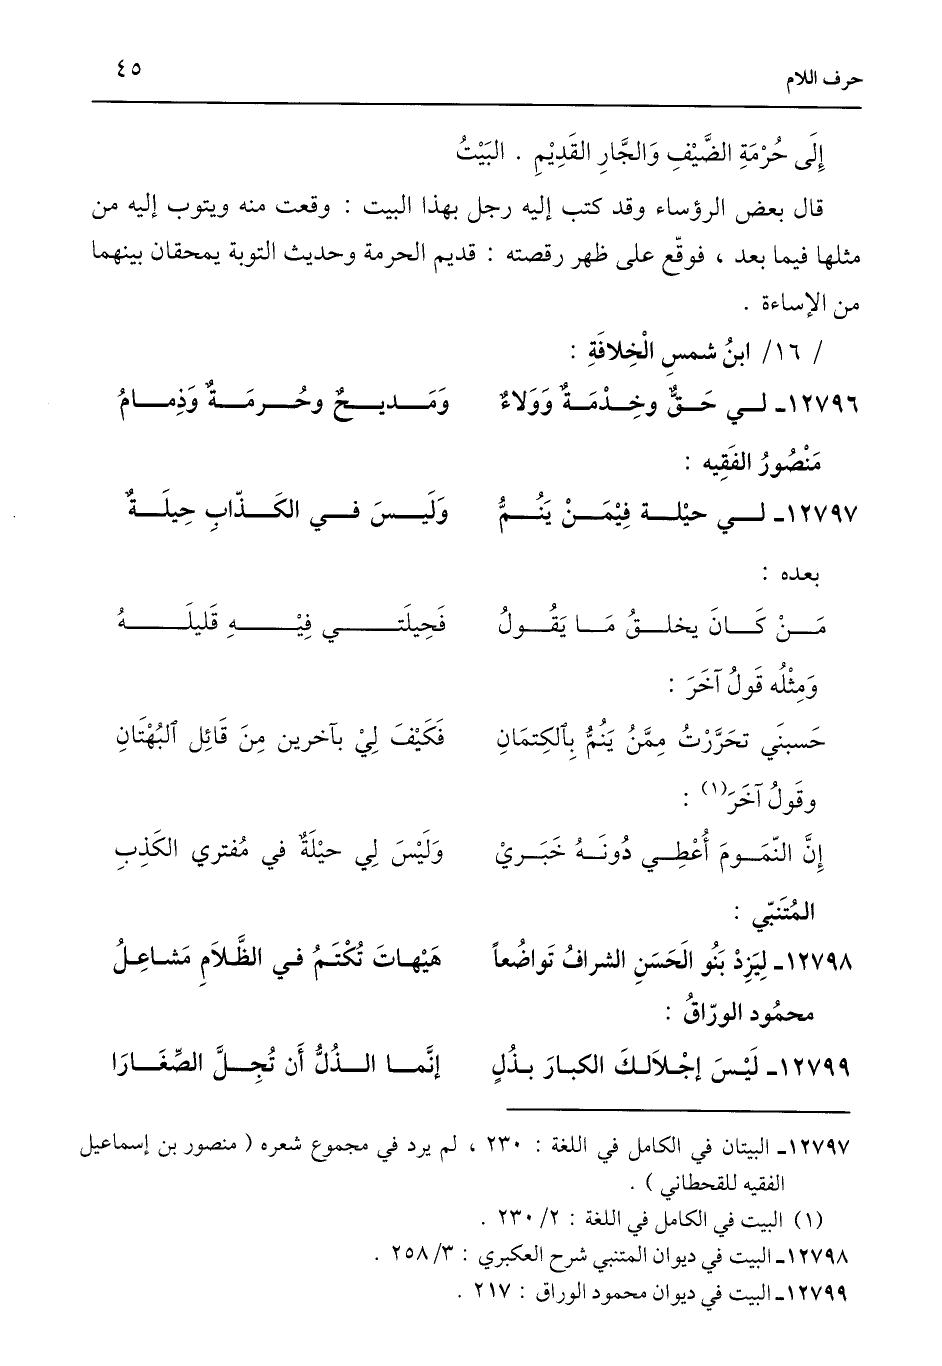 حرف اللام ٤٥
إِلَى حُرْمَةِ الضَّيْفِ وَالجَّارِ القَدِيْمِ . البَيْتُ
قال بعض الرؤساء وقد كتب إليه رجل بهذا البيت : وقعت منه ويتوب إليه من
مثلها فيما بعد ، فوقّع على ظهر رقصته : قديم الحرمة وحديث التوبة يمحقان بينهما
من الإساءة .
/ ١٦/ ابنُ شمسِ الْخِلافَةِ :
١٢٧٩٦ـ لـي حَـقٌّ وخِـدْمَـةٌ وَوَلاءٌ وَمَـديـحٌ وحُـرمَـةٌ وَذِمـامُ
مَنْصُورُ الفَقِيه :
١٢٧٩٧ـ لـي حيْلـة فِيْمَـنْ يَنُـمُّ وَلَيـسَ فـي الكَـذّابِ حِيلَـةٌ
بعده :
مَـنْ كَـانَ يخلـقُ مَـا يَقُـولُ فَحِيلَتـي فِيْـهِ قَليلَـهُ
وَمِثْلُه قَولُ آخَرَ :
حَسبنَي تحَرَّرْتُ مِمَّنُ يَنمُّ بِالكِتمَانِ فَكَيْفَ لِيْ بآخرين مِنَ قَائِل ٱلبُهْتَانِ
وقَولُ آخَرَ(١) :
إِنَّ النّمَـومَ أُعْطِـي دُونَـهُ خَبَـريْ وَلَيْسَ لِي حيْلَةٌ في مُفتري الكَذِبِ
المُتَنبّي :
١٢٧٩٨ـ لِيَزِدْ بَنُو الَحَسَنِ الشرافُ تَواضُعاً هَيْهـاتَ تُكْتَـمُ فـي الظَّـلاَمِ مَشـاعِـلُ
محمُود الورّاقُ :
١٢٧٩٩ـ لَيْـسَ إجْـلاَلـكَ الكبـارَ بـذُلٍ إنَّمـا الـذُلُّ أَن تُجِـلَّ الصِّغَـارَا
١٢٧٩٧ـ البيتان في الكامل في اللغة : ٢٣٠ ، لم يرد في مجموع شعره ( منصور بن إسماعيل
الفقيه للقحطاني ) .
(١) البيت في الكامل في اللغة : ٢/ ٢٣٠ .
١٢٧٩٨ـ البيت في ديوان المتنبي شرح العكبري : ٣/ ٢٥٨ .
١٢٧٩٩ـ البيت في ديوان محمود الوراق : ٢١٧ .